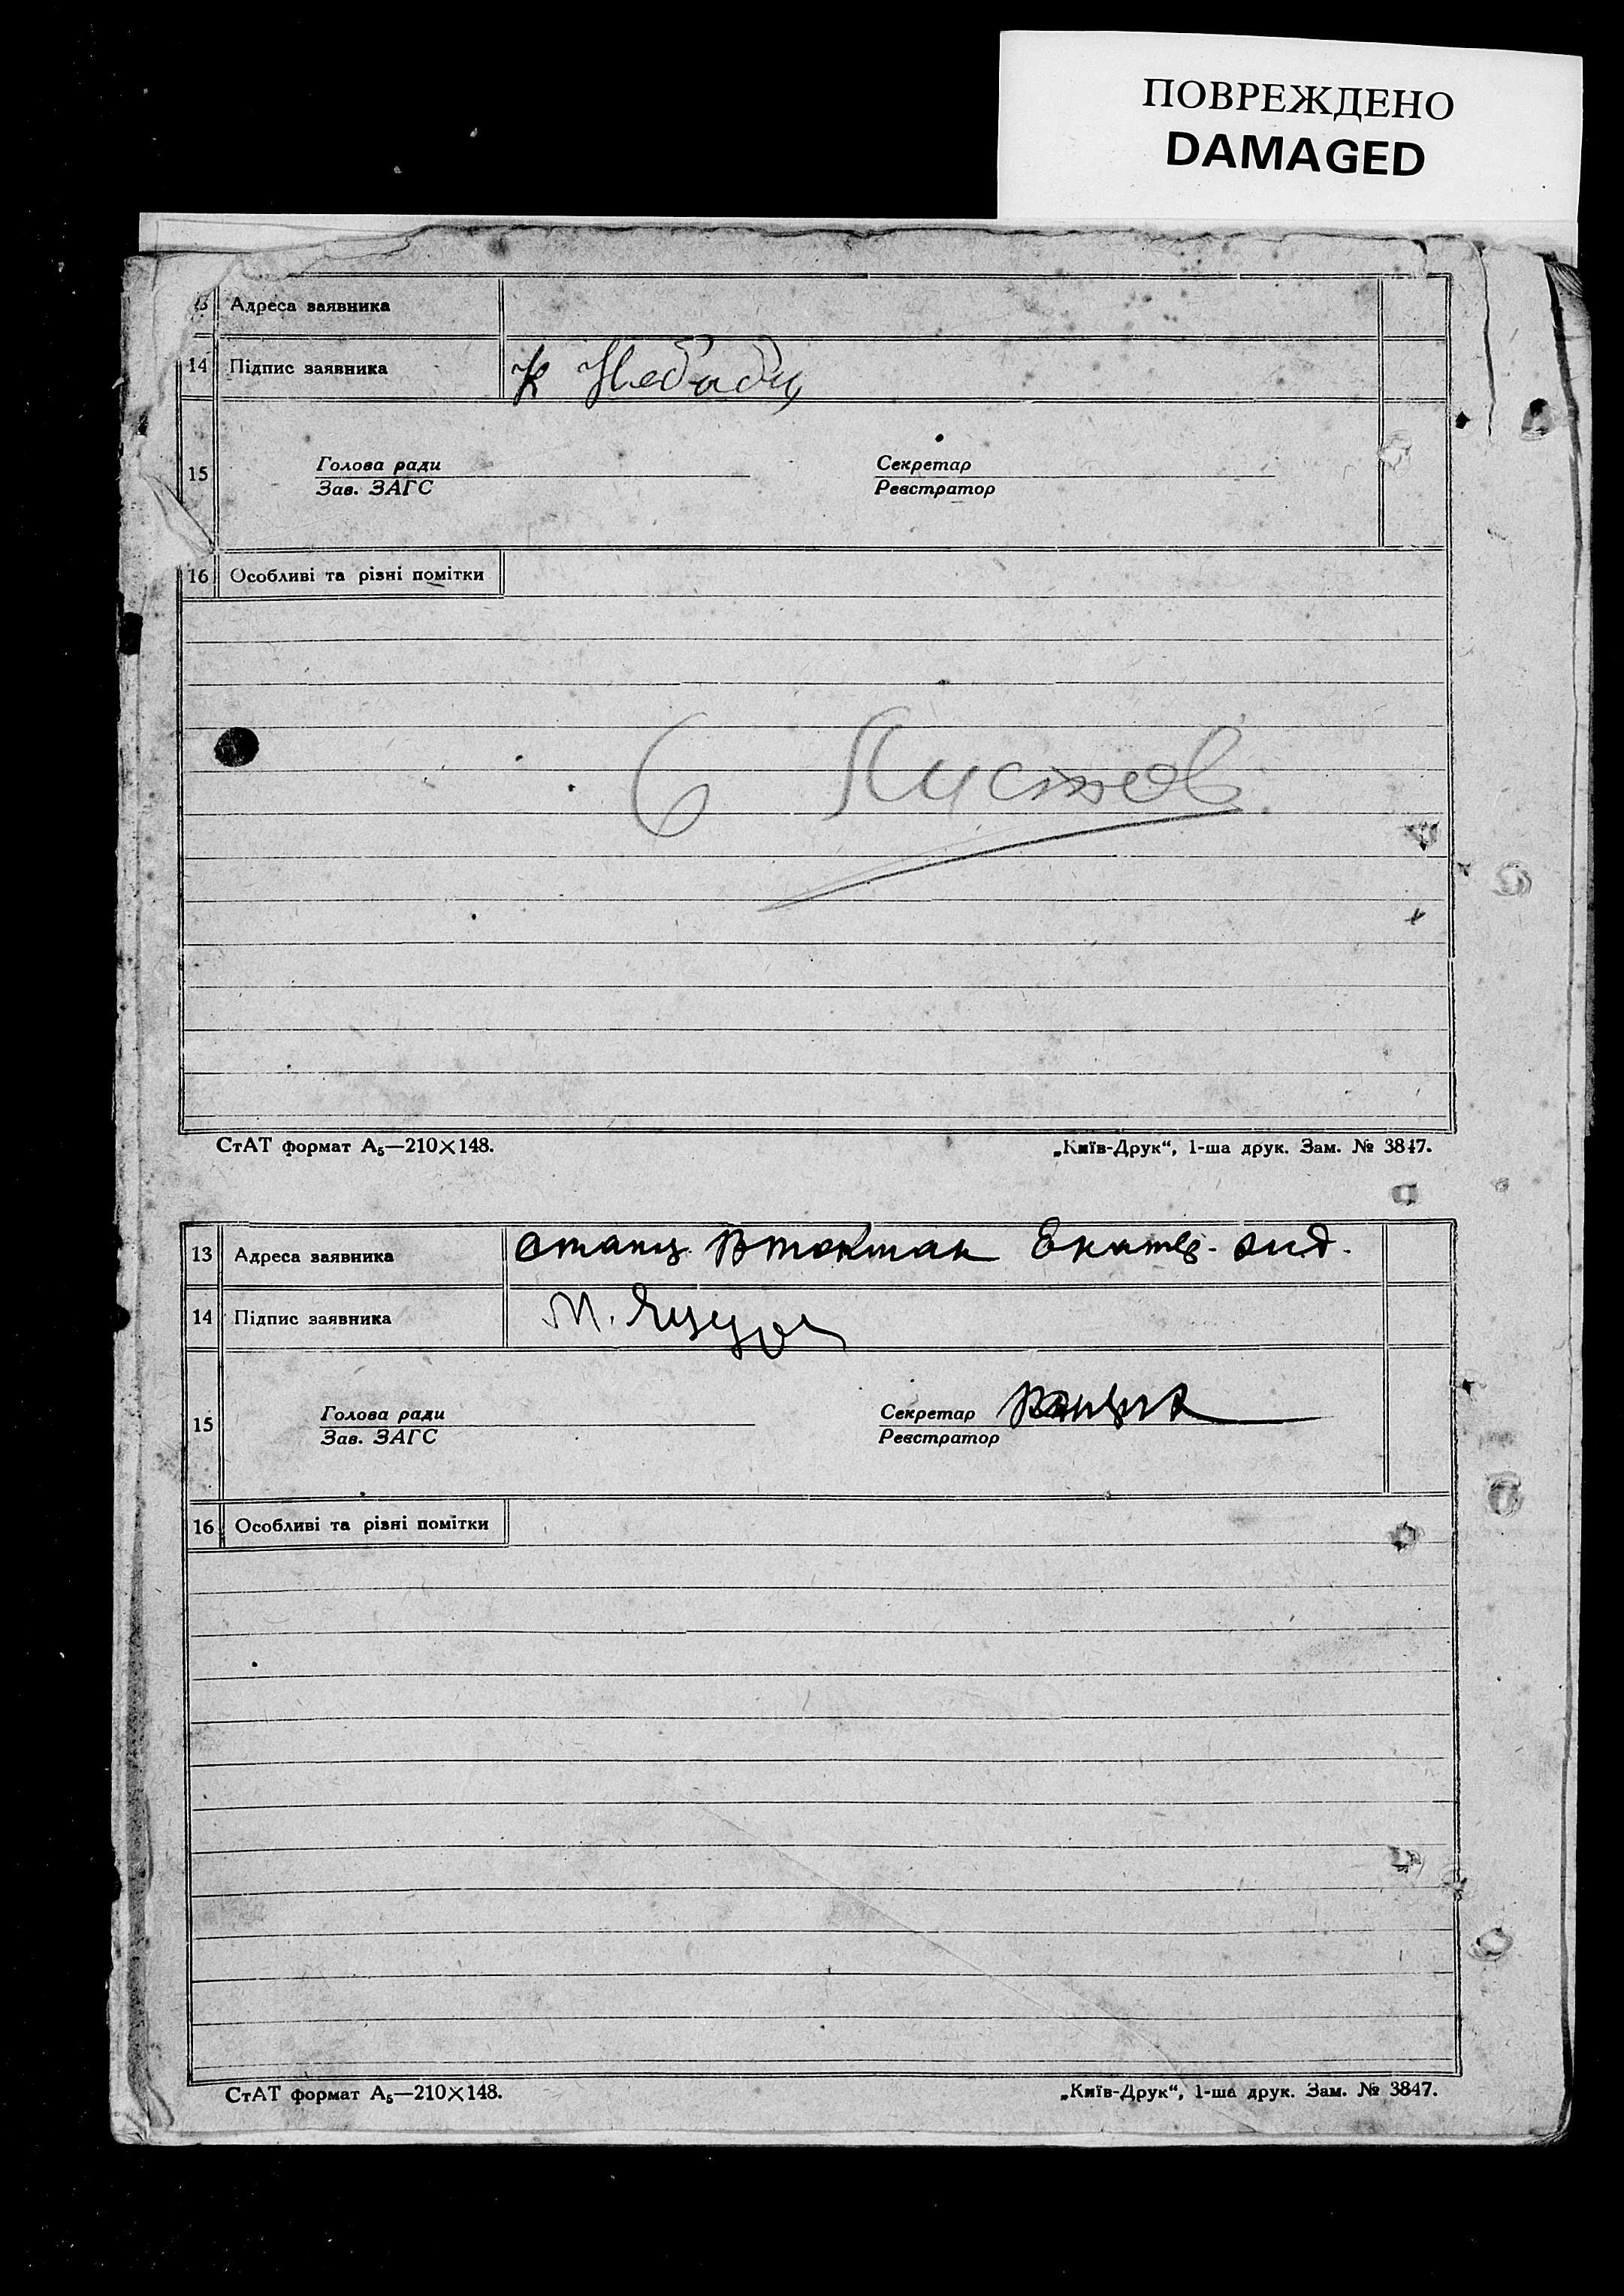 ПОВРЕЖДЕНО
DAMAGED
13 Адреса заявника
14 Підпис заявника К
15 Голова ради Секретар
Зав. ЗАГС Реєстратор
16 Особливі та різні помітки
6 Листов
СтАТ формат А₅—210×148. „Київ-Друк“, 1-ша друк. Зам. № 3847.
13 Адреса заявника станц. Екатер.
14 Підпис заявника М.
15 Голова ради Секретар
Зав. ЗАГС Реєстратор
16 Особливі та різні помітки
СтАТ формат А₅—210×148. „Київ-Друк“, 1-ша друк. Зам. № 3847.